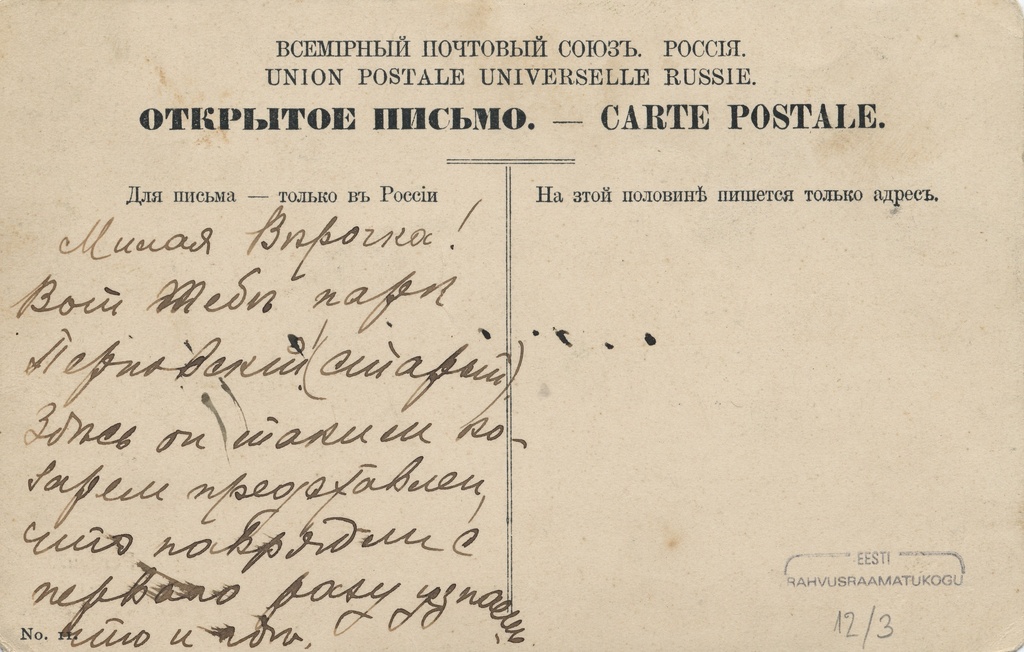 ВСЕМІРНЫЙ ПОЧТОВЫЙ СОЮЗЪ. РОССІЯ.
UNION POSTALE UNIVERSELLE RUSSIE.
ОТКРЫТОЕ ПИСЬМО. — CARTE POSTALE.
Для письма — только въ Россіи
На этой половинѣ пишется только адресъ.
Милая Вѣрочка!
Вот Тебѣ паркъ
Перновскій (старый)
Здѣсь он таким ко-
зарем представлен,
что наврядли с
перваго разу узнаешь
что и гдѣ.
No. 11.
EESTI
RAHVUSRAAMATUKOGU
12/3